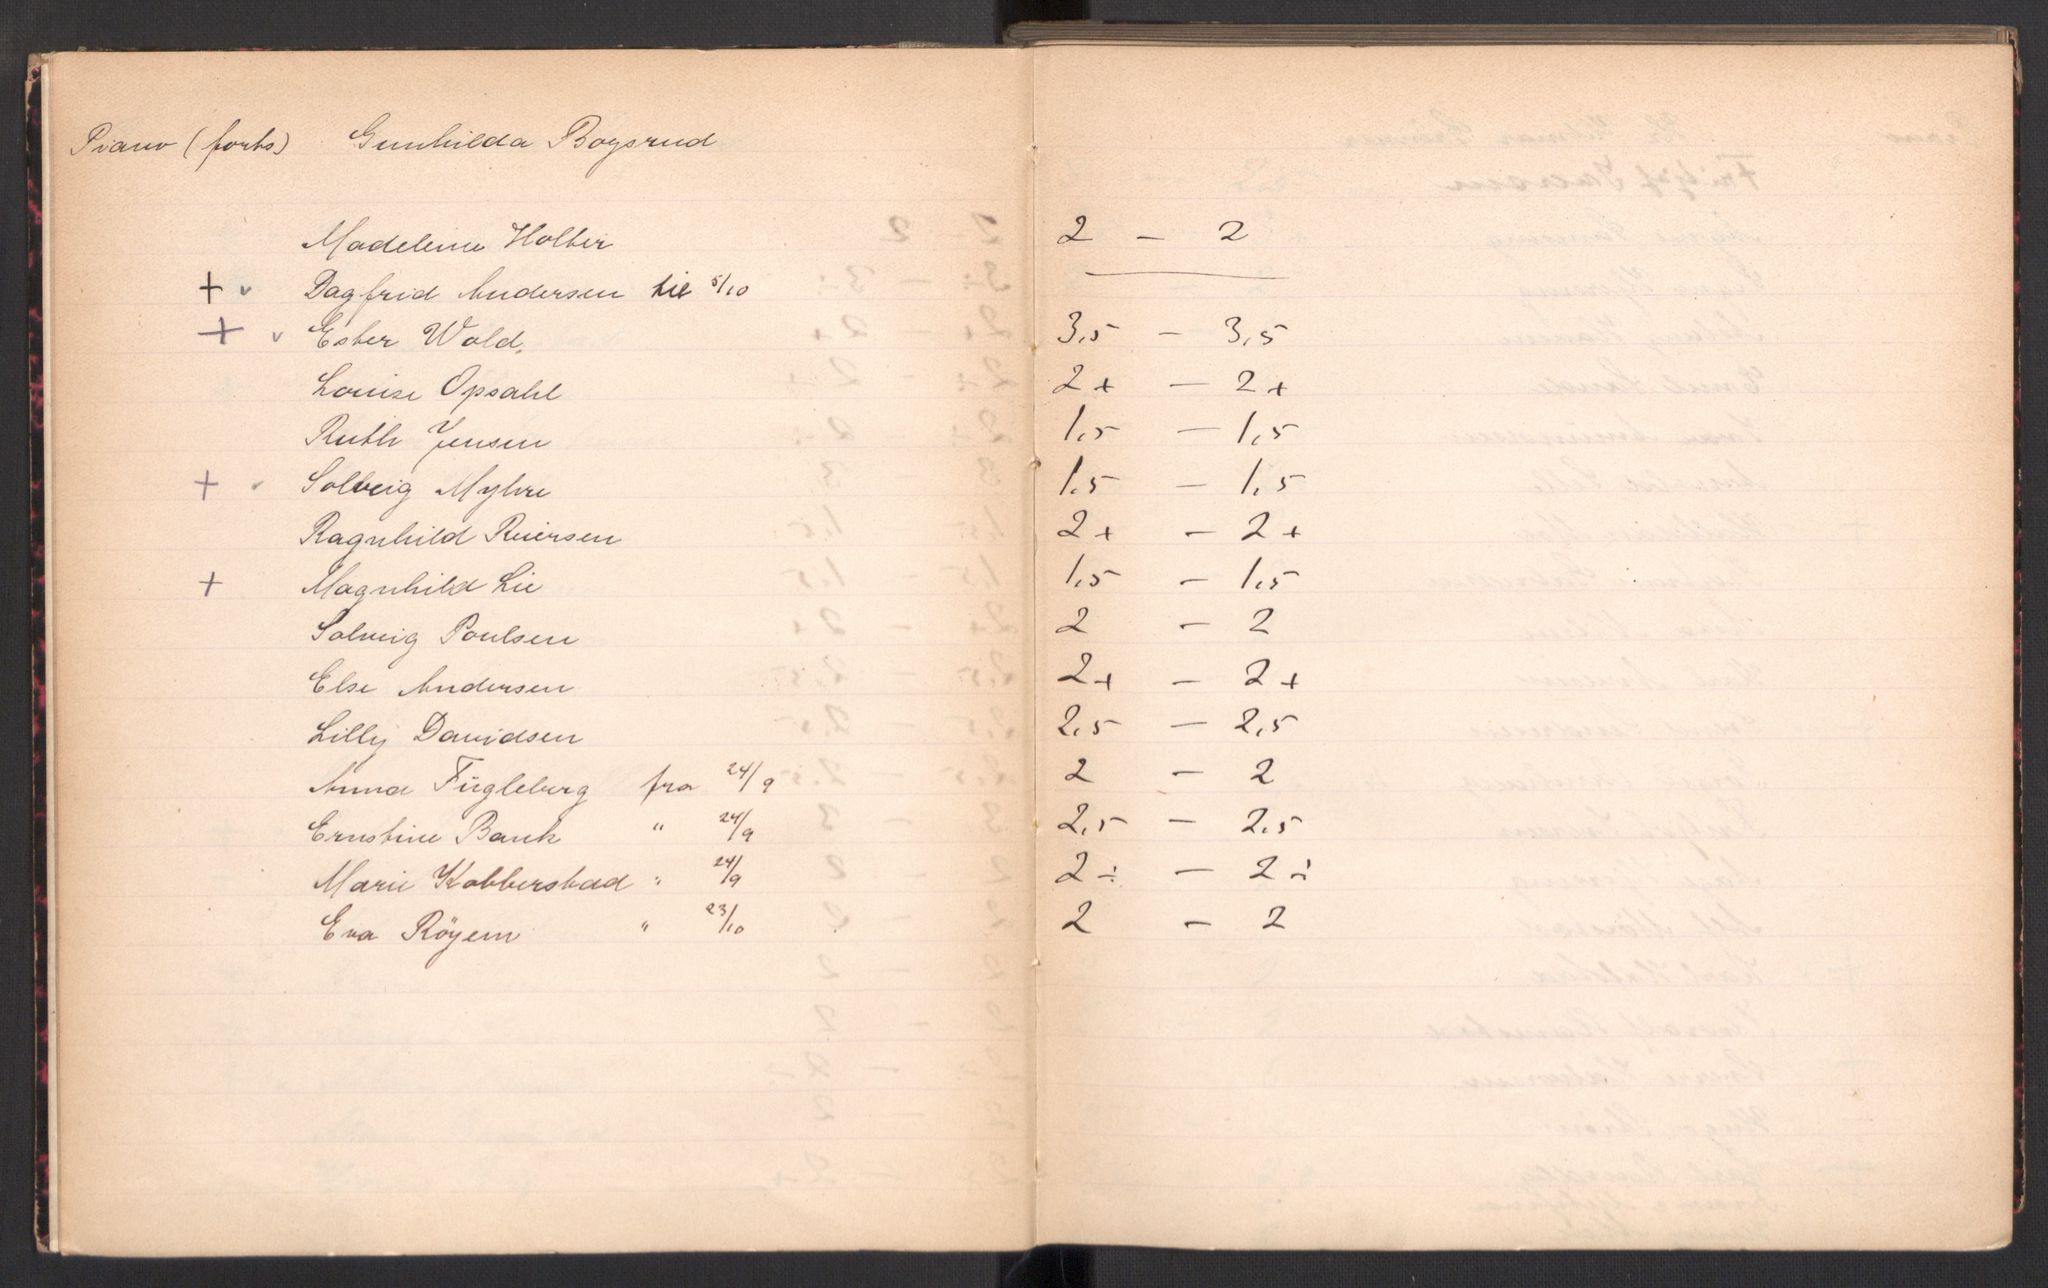 Piano (forts) Gunhilda Bogsrud
Madeleine Holter 2 – 2
+ v Dagfrid Andersen til 5/10 —
+ v Ester Wold. 3,5 – 3,5
Louise Opsahl 2+ – 2+
Ruth Jensen 1,5 – 1,5
+ v Solveig Myhre 1,5 – 1,5
Ragnhild Reiersen 2+ – 2+
+ Magnhild Lie 1,5 – 1,5
Solveig Poulsen 2 – 2
Else Andersen 2+ – 2+
Lilly Davidsen 2,5 – 2,5
Anna Fugleberg fra 24/9 2 – 2
Ernstine Bank " 24/9 2,5 – 2,5
Marie Kobberstad " 24/9 2÷ – 2÷
Eva Röyem " 23/10 2 – 2